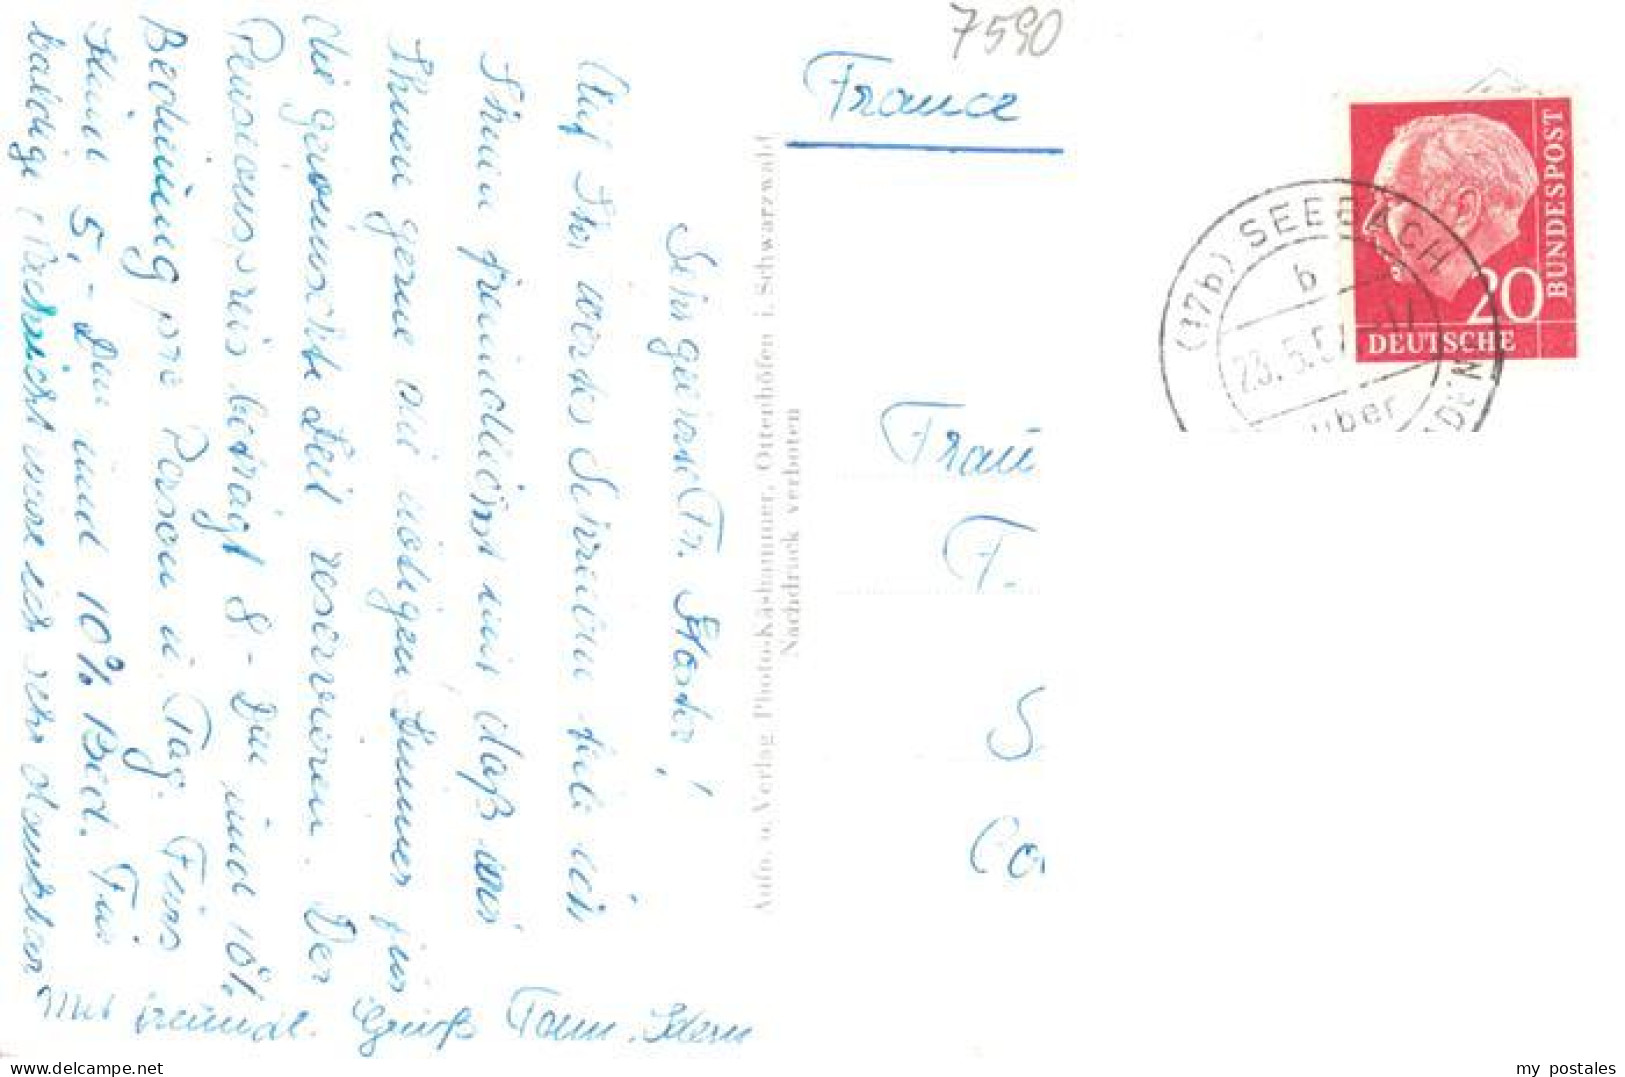 7590
France
Sehr geehrte Fr. Hoster!
Auf Ihr wertes Schreiben teile ich
Ihnen freundlichst mit daß wir
Ihnen gerne die nötigen Zimmer für
die gewünschte Zeit reservieren. Der
Pensionspreis beträgt 8.- DM und 10%
Bedienung pro Person u. Tag. Fürs
Kind 5,- DM und 10% Bed. Für
baldige Nachricht wäre ich sehr dankbar
Mit freundl. Gruß Fam.
Aufn. u. Verlag Photo-Käshammer, Ottenhöfen i. Schwarzwald
Nachdruck verboten
DEUTSCHE BUNDESPOST
20
(17b) SEEBACH
b
23.5.5
Frau
F.
S
Co
delcampe.net
my postales